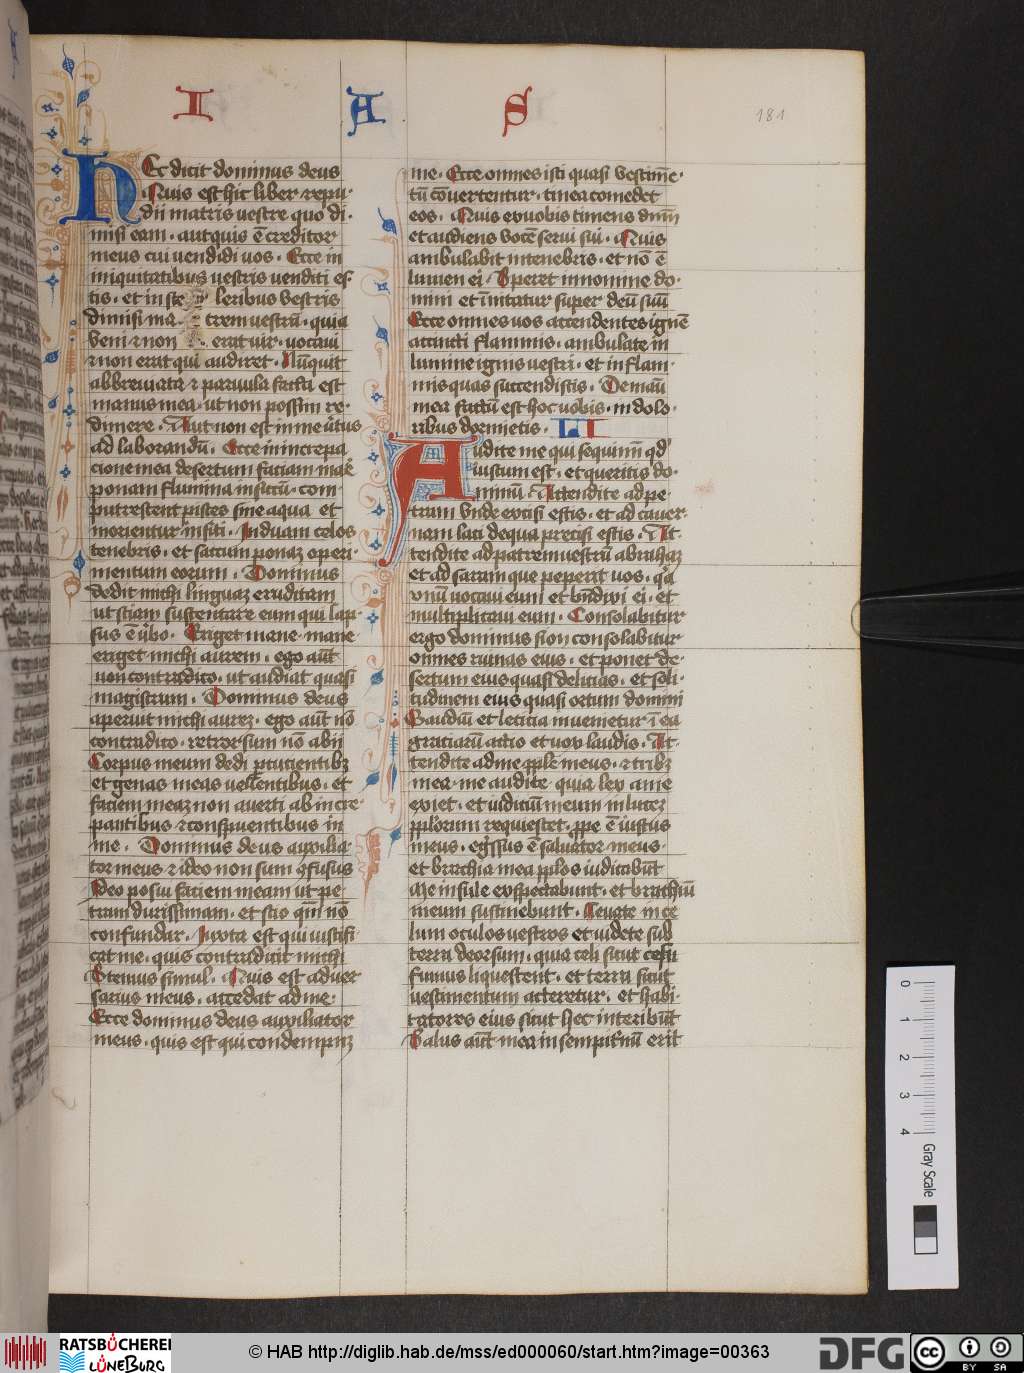 I A S
181
Hec dicit dominus deus
Quis est hic liber repu-
dii matris vestre quo di-
misi eam · aut quis ē creditor
meus cui vendidi vos · Ecce in
iniquitatibus vestris venditi es-
tis · et in sce leribus vestris
dimisi ma trem vestrā · quia
veni ⁊ non erat vir · vocavi
⁊ non erat qui audiret · Nūquit
abbreviata ⁊ parvula facta est
manus mea · ut non possim re-
dimere · Aut non est in me v̄tus
ad laborandū · Ecce in increpa
cione mea desertum faciam mar̄
ponam flumina in siccū · com-
putrescent pisces sine aqua et
morientur in siti · Induam celos
tenebris · et saccum ponaꝫ operi-
mentum eorum · Dominus
dedit michi linguaꝫ eruditam
ut sciam sustentare eum qui lap-
sus ē v̄bo · Eriget mane · mane
eriget michi aurem · ego aut̄
non contradico · ut audiat quasi
magistrum · Dominus deus
aperuit michi aureꝫ · ego aut̄ nō
contradico · retrorsum nō abii
Corpus meum dedi ꝑcucientibꝫ
et genas meas vellentibus · et
faciem meaꝫ non averti ab incre-
pantibus ⁊ conspuentibus in
me · Dominus deus auxilia-
tor meus ⁊ ideo non sum ꝯfusus
Ideo posui faciem meam ut pe-
tram durissimam · et scio qm̄ nō
confundar · Juxta est qui iustifi-
cat me · quis contradicit michi
Stemus simul · Quis est adver
sarius meus · accedat ad me ·
Ecce dominus deus auxiliator
meus · quis est qui condempnꝫ
me · Ecce omnes isti quasi vestim̄e-
tū cōvertentur · tinea comedet
eos · Quis ex vobis timens dnm̄
et audiens vocē servi sui · Quis
ambulabit in tenebris · et nō ē
lumen ei · Speret in nomine do-
mini et īnitatur super deū suū
Ecce omnes vos accendentes ignē
accincti flammis · ambulate in
lumine ignis vestri · et in flam-
mis quas succendistis · De manu
mea factū est hoc vobis · in dolo-
ribus dormietis · LI
Audite me qui sequimī qd̄
iustum est · et queritis do-
minū · Attendite ad pe-
tram unde excisi estis · et ad caver-
nam laci de qua precisi estis · At-
tendite ad patrem vestrū abrahaꝫ
et ad saram que peperit vos · qͣ
unū vocavi eum et bn̄dixi ei · et
multiplicavi eum · Consolabitur
ergo dominus sion consolabitur
omnes ruinas eius · et ponet de-
sertum eius quasi delicias · et soli-
tudinem eius quasi ortum domini
Gaudiū et leticia invenietur ī ea
graciarū actio et vox laudis · At-
tendite ad me pple meus · ⁊ tribꝫ
mea · me audite quia lex a me
exiet · et iudiciū meum in luceꝫ
pplorum requiescet · ꝓpe ē iustus
meus · egr̄ssus ē salvator meus ·
et brachia mea pplos iudicabūt
Me insule exspectabunt · et brachiū
meum sustinebunt · Levate in ce
lum oculos vestros et videte sub
terra deorsum · quia celi sicut
fumus liquescent · et terra sicut
vestimentum atteretur · et habi-
tatores eius sicut hec interibūt
Salus aut̄ mea in sempit̄nū erit
0 1 2 3 4
Gray Scale
RATSBÜCHEREI
LÜNEBURG
© HAB http://diglib.hab.de/mss/ed000060/start.htm?image=00363
DFG
cc BY SA